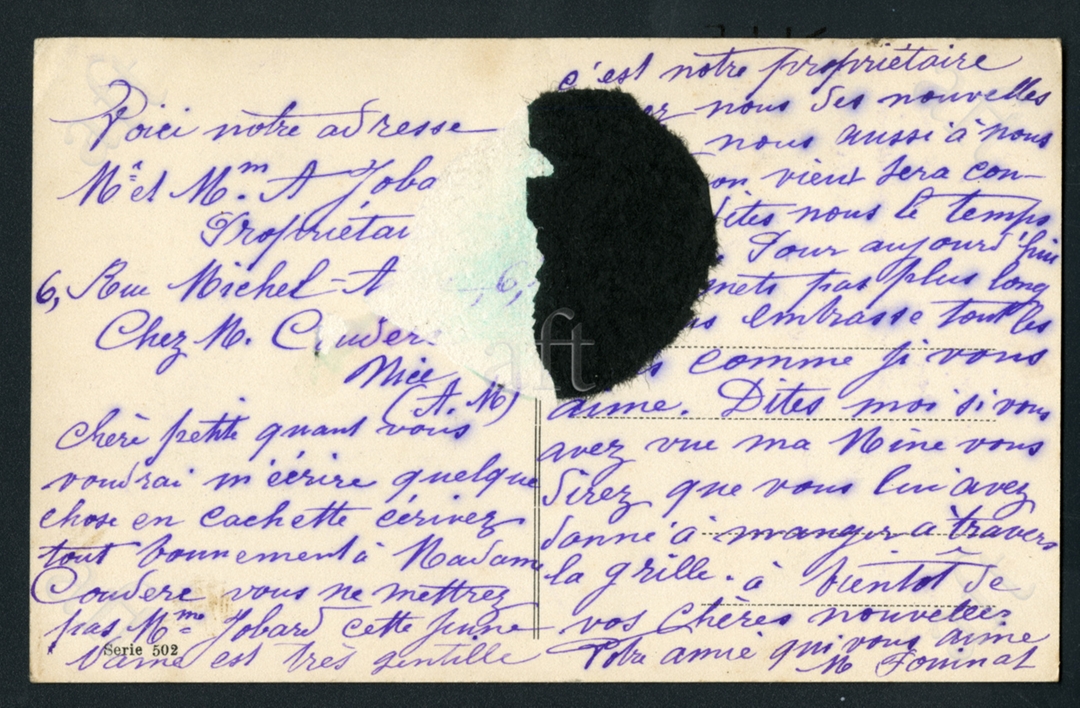 Voici notre adresse
Mr et Mm. A Joba
Propriétai
6, Rue Michel-A
Chez M. Couder
Nice
(A. M)
chère petite quant vous
voudrai m'écrire quelque
chose en cachette écrivez
tout bonnement à Madame
Coudere vous ne mettrez
pas Mme Jobard cette jeune
Dame est très gentille
Serie 502
c'est notre propriétaire
ez nous des nouvelles
nous aussi à nous
on vient sera con-
dites nous le temps
. Pour aujourd'hui
mets pas plus long
s embrasse tout les
s comme je vous
aime. Dites moi si vous
avez vue ma Nine vous
direz que vous lui avez
donné à manger a travers
la grille. à bientôt de
vos chères nouvelles.
Votre amie qui vous aime
M
aft